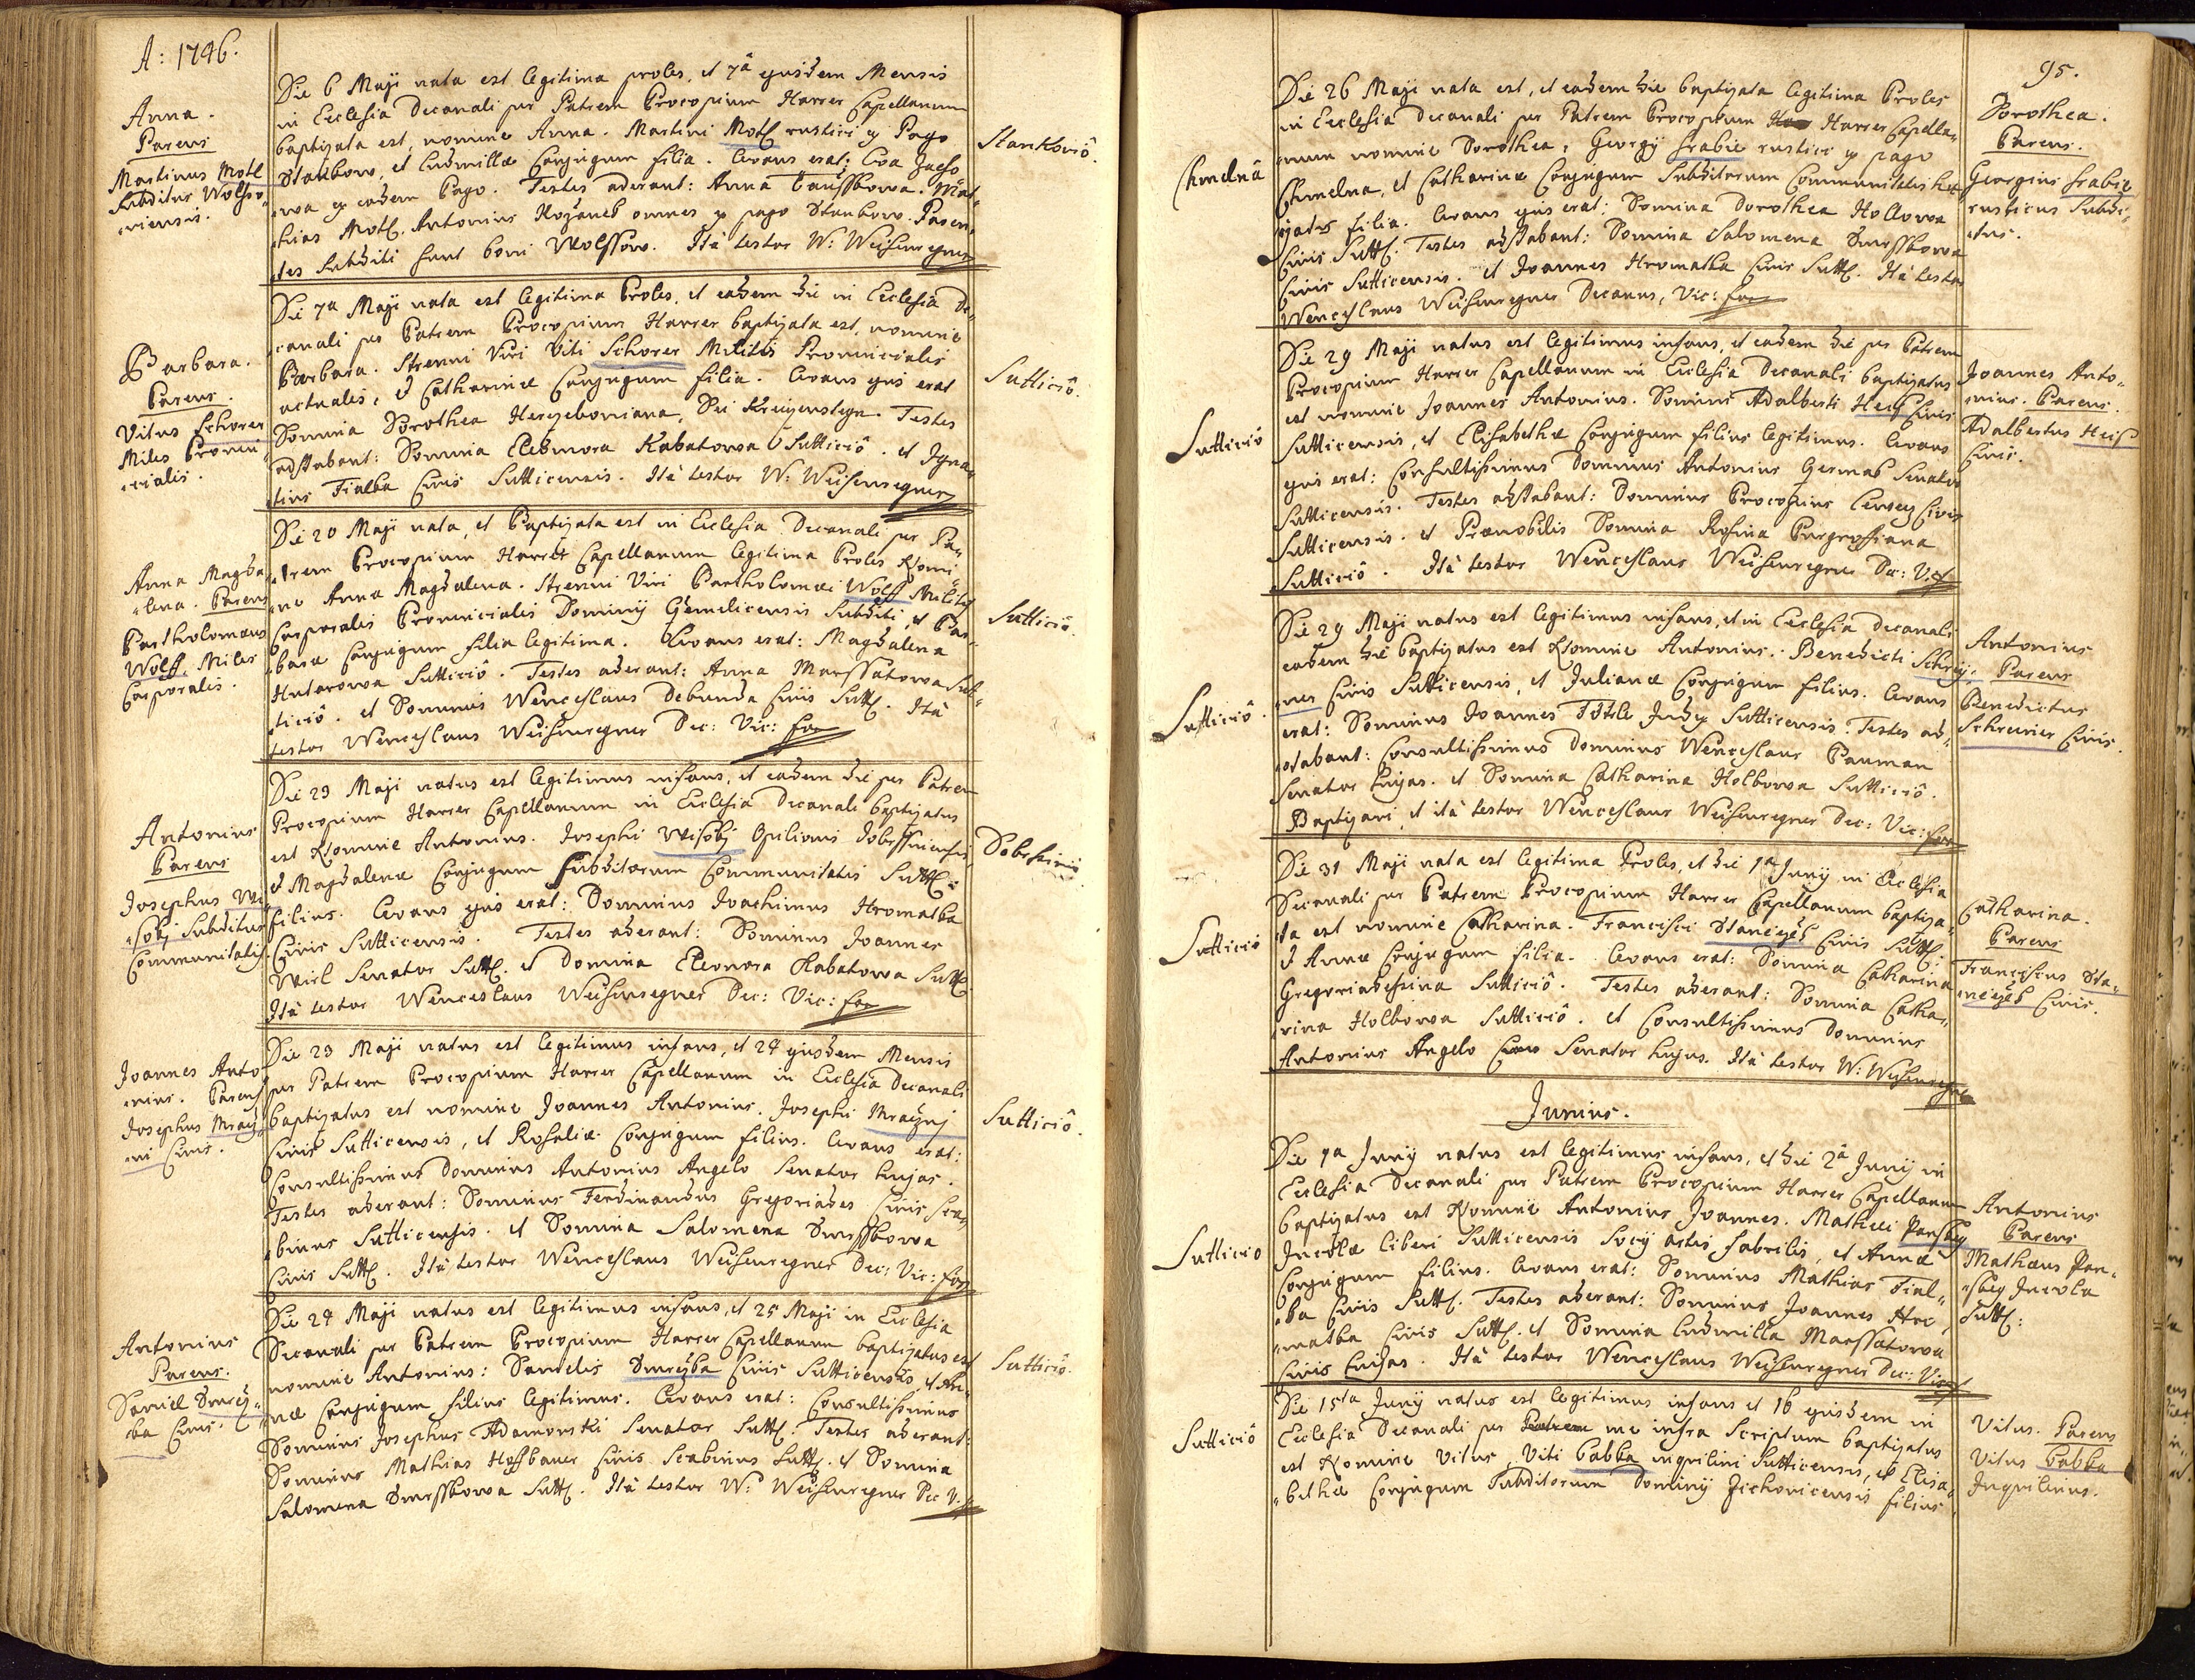 A: 1746.
Anna.
Parens
Martinus Motl
Subditus Wolsso-
viensis.
Die 6 Maji nata est legitima proles, et 7â ejusdem Mensis
in Ecclesia Decanali per Patrem Procopium Harrer Capellanum
baptizata est, nomine Anna. Martini Motl rustici ex Pago
Stankow, et Ludmillæ Conjugum filia. Levans erat: Eva
-wa ex eodem Pago. Testes aderant: Anna Wat-
-hias Motl. Antonius omnes ex pago Stankow. Paren-
-tes subditi sunt boni Wolssow. Ità testor W: Weisenregner
Stankoviô.
Barbara.
Parens.
Vitus Schorer
Miles Provin-
-cialis.
Die 7a Maji nata est legitima Proles, et eadem die in Ecclesia De-
canali per Patrem Procopium Harrer baptizata est, nomine
Barbara. Strenui Viri Viti Schorer Militis Provincialis
actualis, et Catharinæ Conjugum filia. Levans ejus erat
Domina Dorothea Testes
adstabant: Domina Eleonora Kabatowa Sutticiô. et Igna-
tius Fialka Civis Sutticensis. Ità testor W: Weisenregner
Sutticiô.
Anna Magda-
-lena. Parens
Bartholomæus
Wolff Miles
Corporalis.
Die 20 Maji nata, et Baptizata est in Ecclesia Decanali per Pa-
-trem Procopium Harrer Capellanum legitima Proles Nomi-
-ne Anna Magdalena. Strenui Viri Bartholomæi Wolff Militis
Corporalis Provincialis Dominij subditi, et Bar-
-baræ Conjugum filia legitima. Levans erat: Magdalena
Sutticiô. Testes aderant: Anna Marssatowa Sut-
ticiô. et Dominus Wenceslaus Debunda Civis Sutt. Ità
testor Wenceslaus Weisenregner Dec: Vic: for
Sutticiô.
Antonius
Parens
Josephus Wi-
-sokj Subditus
Communitatis.
Die 23 Maji natus est legitimus infans, et eadem die per Patrem
Procopium Harrer Capellanum in Ecclesia Decanali baptizatus
est Nomine Antonius. Josephi Wisokj Opilionis Dobrssinensis
et Magdalenæ Conjugum subditorum Communitatis Sutt:
filius. Levans ejus erat: Dominus Joachimus Hromatka
Civis Sutticensis. Testes aderant: Dominus Joannes
Wirl Senator Sutt. et Domina Eleonora Kabatowa Sutt.
Ità testor Wenceslaus Weisenregner Dec: Vic: for
Dobrssinii
Joannes Anto-
-nius. Parens
Josephus Mracz-
-ni Civis.
Die 23 Maji natus est legitimus infans, et 24 ejusdem Mensis
per Patrem Procopium Harrer Capellanum in Ecclesia Decanali
baptizatus est nomine Joannes Antonius. Josephi Mracznj
Civis Sutticensis, et Rosaliæ Conjugum filius. Levans erat:
Consultissimus Dominus Antonius Angelo Senator hujas.
Testes aderant: Dominus Ferdinandus Gregoriades Civis Sca-
-binus Sutticensis. et Domina Salomena Smrsskowa
Civis Sutt. Ità testor Wenceslaus Weisenregner Dec: Vic: for
Sutticiô.
Antonius
Parens.
Daniel Smrcz-
-ka Civis.
Die 24 Maji natus est legitimus infans, et 25 Maji in Ecclesia
Decanali per Patrem Procopium Harrer Capellanum baptizatus est
nomine Antonius: Danielis Smrczka Civis Sutticensis, et An-
-næ Conjugum filius legitimus. Levans erat: Consultissimus
Dominus Josephus Adamowski Senator Sutt. Testes aderant:
Dominus Mathias Hoffbauer Civis Scabinus Sutt. et Domina
Salomena Smrsskowa Sutt. Ità testor W: Weisenregner Dec V. f
Sutticiô.
95.
Chmelnâ
Die 26 Maji nata est, et eadem die baptizata legitima Proles
in Ecclesia Decanali per Patrem Procopium Harrer Capella-
-num nomine Dorothea: Georgij Hrabie rustici ex pago
Chmelna, et Catharinæ Conjugum Subditorum Communitatis
filia. Levans ejus erat: Domina Dorothea Hollowa
Civis Sutt. Testes adstabant: Domina Salomena Smrsskowa
Civis Sutticensis. et Joannes Hromatka Civis Sutt. Ità testor
Wenceslaus Weisenregner Decanus, Vic: for
Dorothea.
Parens.
Georgius Hrabie
rusticus Subdi-
-tus.
Sutticiô
Die 29 Maji natus est legitimus infans, et eadem die per Patrem
Procopium Harrer Capellanum in Ecclesia Decanali baptizatus
est nomine Joannes Antonius. Domini Adalberti Heiss Civis
Sutticensis, et Elisabethæ Conjugum filius legitimus. Levans
ejus erat: Consultissimus Dominus Antonius Germak Senator
Sutticensis. Testes adstabant: Dominus Procopius Civis
Sutticensis. et Prænobilis Domina Rosina
Sutticiô. Ità testor Wenceslaus Weisenregner Dec: V. f
Joannes Anto-
-nius. Parens.
Adalbertus Heiss
Civis.
Sutticiô.
Die 29 Maji natus est legitimus infans, et in Ecclesia Decanali
eadem die baptizatus est Nomine Antonius. Benedicti Schrey-
-ner Civis Sutticensis, et Julianæ Conjugum filius. Levans
erat: Dominus Joannes Judex Sutticensis. Testes ad-
-stabant: Consultissimus Dominus Wenceslaus Pauman
Senator hujas. et Domina Catharina Holbowa Sutticiô.
Baptizavi, et ità testor Wenceslaus Weisenregner Dec: Vic: for
Antonius
Parens
Benedictus
Schreiner Civis.
Sutticiô
Die 31 Maji nata est legitima Proles, et die 1a Junij in Ecclesia
Decanali per Patrem Procopium Harrer Capellanum baptiza-
-ta est nomine Catharina. Francisci Stanczek Civis Sutt:
et Annæ Conjugum filia. Levans erat: Domina Catharina
Gregoriadessina Sutticiô. Testes aderant: Domina Catha-
-rina Holbowa Sutticiô. et Consultissimus Dominus
Antonius Angelo Senator hujus. Ità testor W: Weisenregner
Catharina.
Parens
Franciscus Sta-
-nczek Civis.
Junius.
Sutticio
Die 1a Junij natus est legitimus infans, et die 2â Junij in
Ecclesia Decanali per Patrem Procopium Harrer Capellanum
baptizatus est Nomine Antonius Joannes. Mathæi Pansky
Incolæ liberi Sutticensis Socij artis fabrilis, et Annæ
Conjugum filius. Levans erat: Dominus Mathias Fial-
-ka Civis Sutt. Testes aderant: Dominus Joannes Hro-
-matka Civis Sutt. et Domina Ludmilla Marssatowa
Civis hujas. Ità testor Wenceslaus Weisenregner Dec: Vic f
Antonius
Parens
Mathæus Pan-
-sky Incola
Sutt:
Sutticiô
Die 15ta Junij natus est legitimus infans et 16 ejusdem in
Ecclesia Decanali per Patrem me infra Scriptum baptizatus
est Nomine Vitus, Viti Babka inquilini Sutticensis, et Elisa-
-bethæ Conjugum Subditorum Dominij Zichovicensis filius
Vitus. Parens
Vitus Babka
Inquilinus.